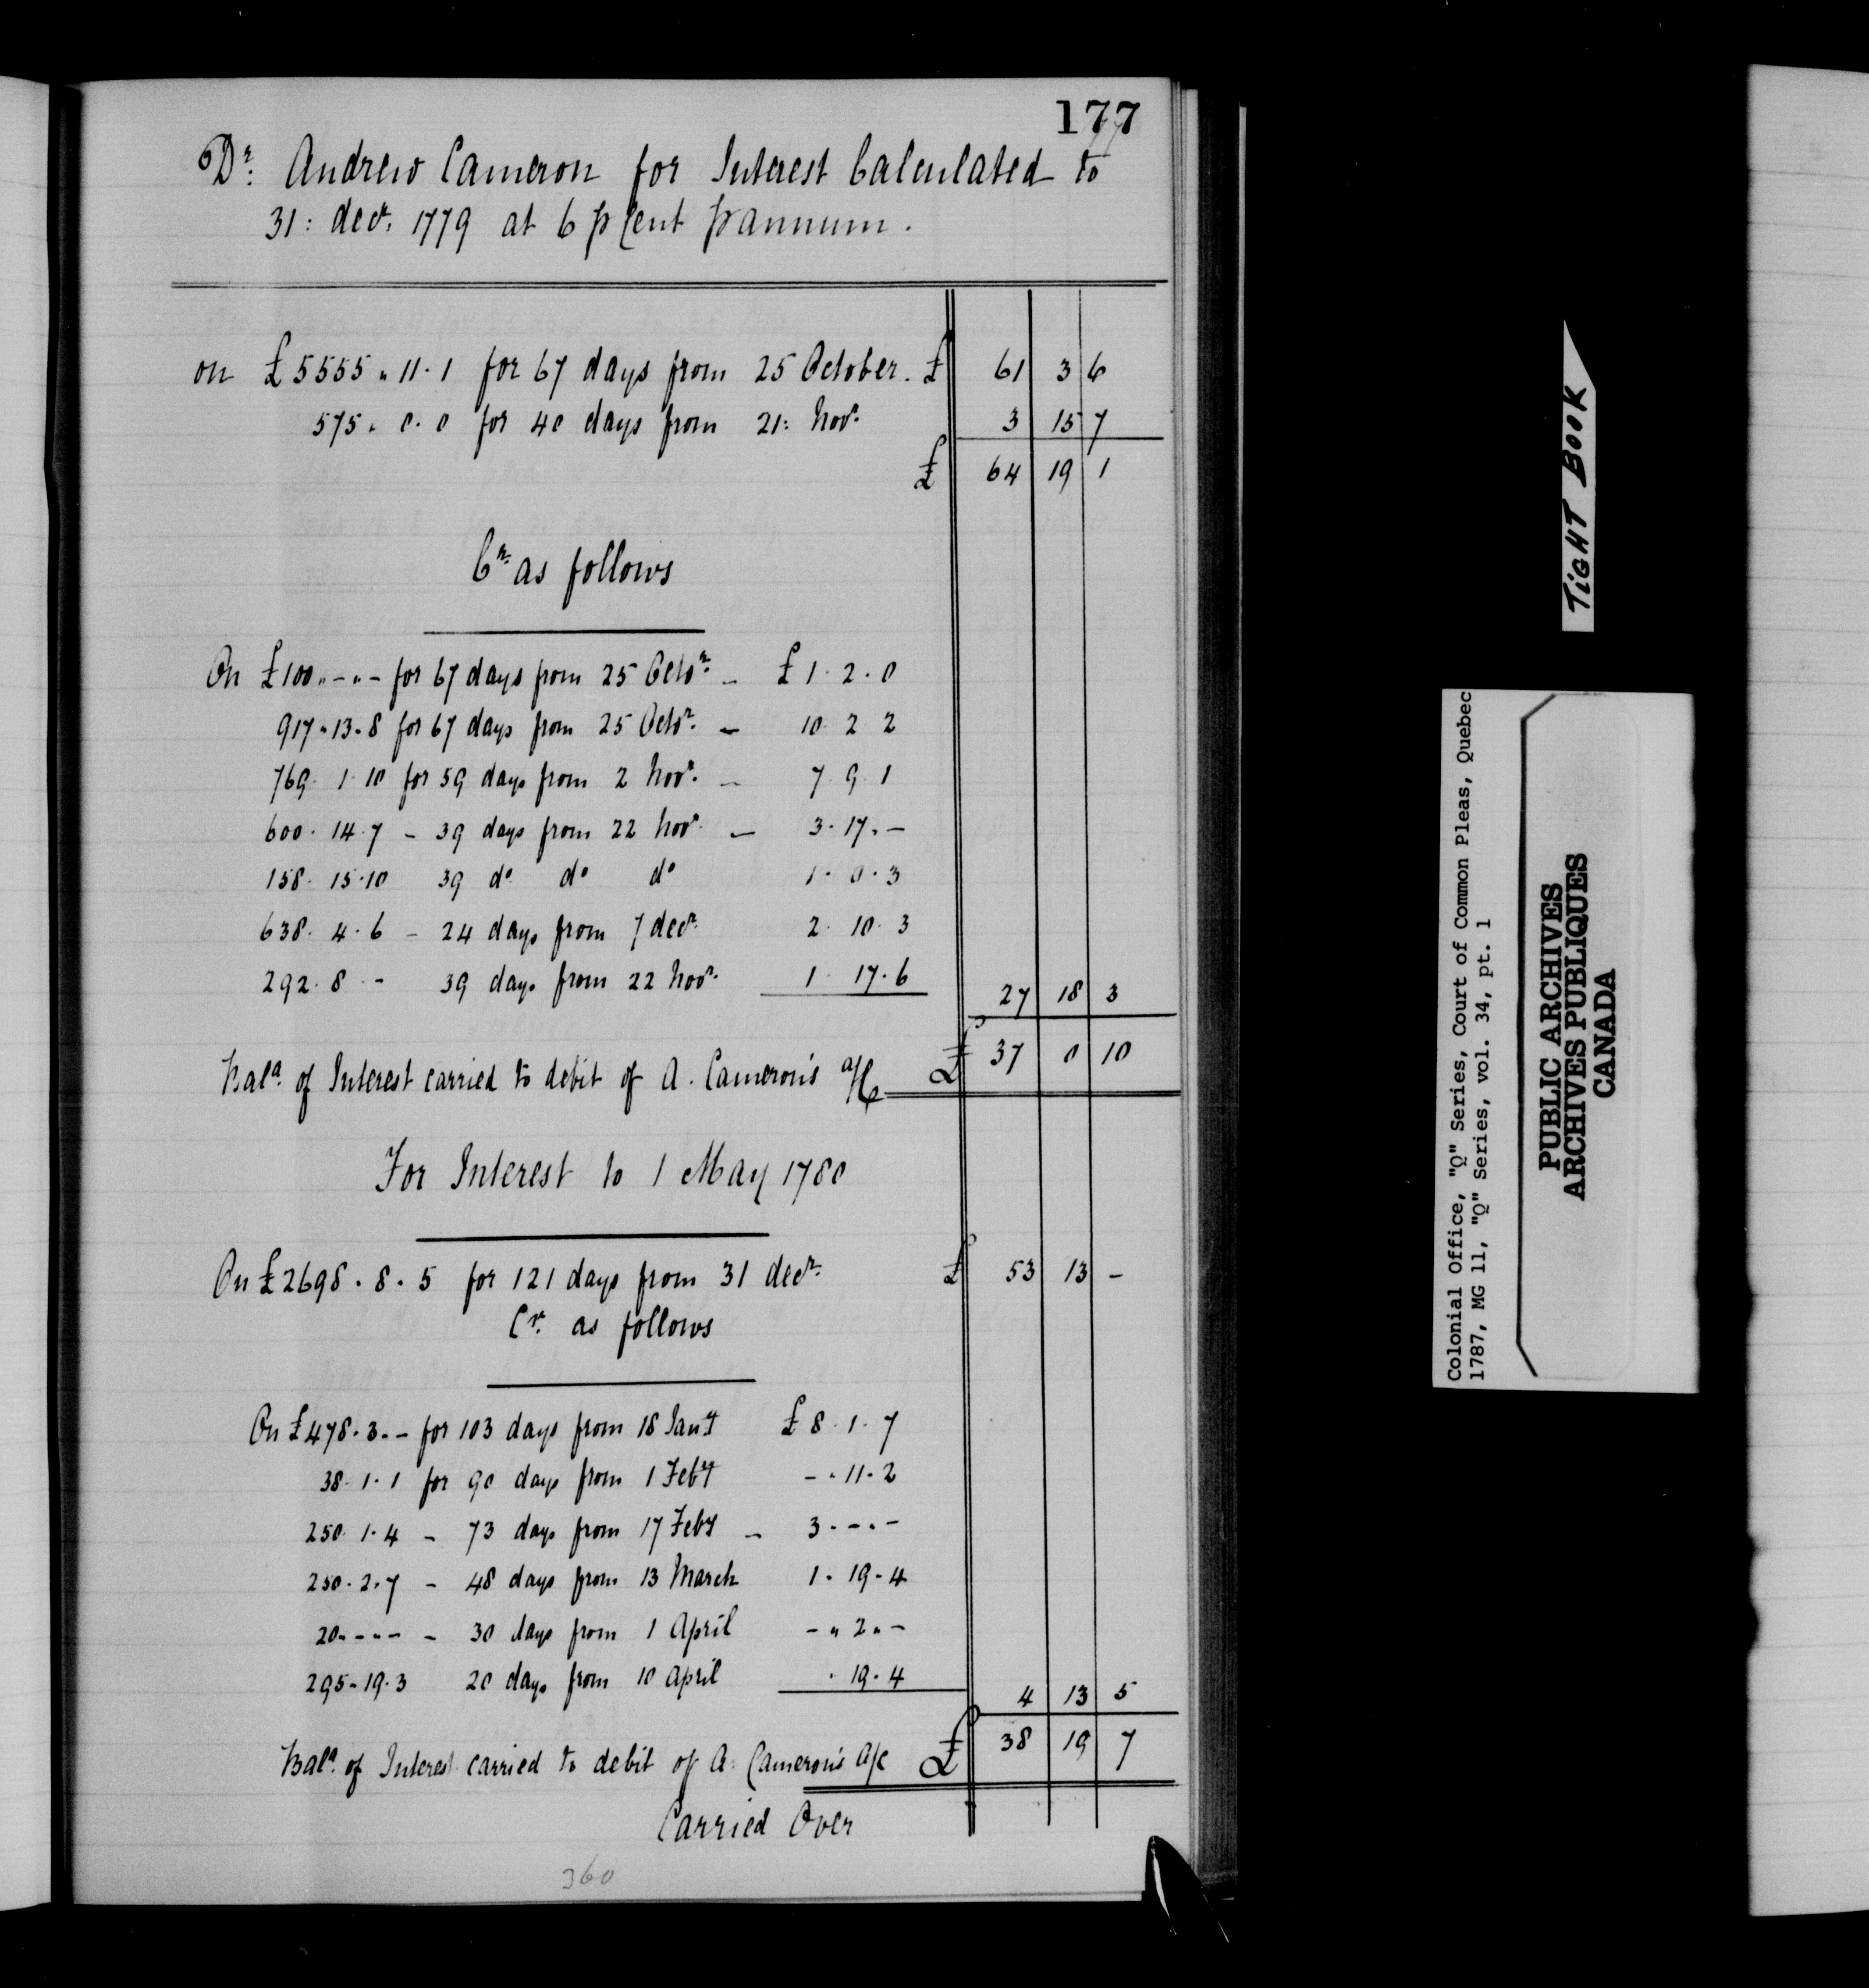 177
Dr. Andrew Cameron for Interest Calculated to
31: decr. 1779 at 6 p Cent pannum.
on £5555 " 11 . 1 for 67 days from 25 October. £ 61 3 6
575 . 0 . 0 for 40 days from 21: Novr. 3 15 7
£ 64 19 1
Cr. as follows
On £100 " - " - for 67 days from 25 Octor. - £ 1 . 2 . 0
917 " 13 . 8 for 67 days from 25 Octor. - 10 2 2
769 . 1 . 10 for 59 days from 2 Novr. - 7 . 9 . 1
600 . 14 . 7 - 39 days from 22 Novr. - 3 . 17 . -
158 . 15 . 10 39 do do do 1 . 0 . 3
638 . 4 . 6 - 24 days from 7 decr. 2 . 10 . 3
292 . 8 . - 39 days from 22 Novr. 1 . 17 . 6 27 18 3
Bala. of Interest carried to debit of A. Cameron's a/c £ 37 0 10
For Interest to 1 May 1780
On £2698 . 8 . 5 for 121 days from 31 decr. £ 53 13 -
Cr. as follows
On £478 . 3 . - for 103 days from 18 Jany £ 8 . 1 . 7
38 . 1 . 1 for 90 days from 1 Feby - " 11 . 2
250 . 1 . 4 - 73 days from 17 Feby - 3 . - . -
250 . 2 . 7 - 48 days from 13 March 1 . 19 . 4
20 . - . - - 30 days from 1 April - " 2 " -
295 . 19 . 3 20 days from 10 April . 19 . 4 4 13 5
Bala. of Interest carried to debit of A. Cameron's a/c £ 38 19 7
Carried Over
360
TIGHT BOOK
Colonial Office, "Q" Series, Court of Common Pleas, Quebec
1787, MG 11, "Q" Series, vol. 34, pt. 1
PUBLIC ARCHIVES
ARCHIVES PUBLIQUES
CANADA